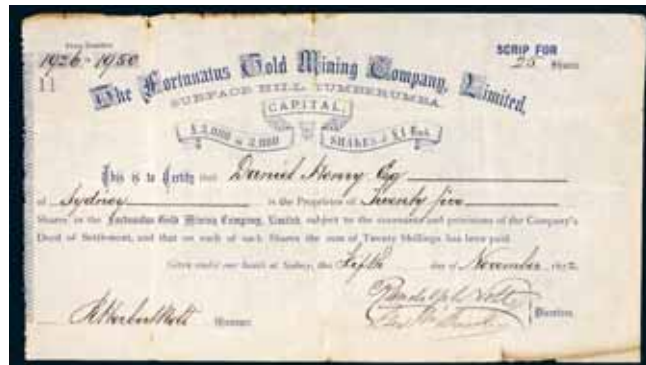 1926-1950
SCRIP FOR
11
25 Shares
The Fortunatus Gold Mining Company, Limited,
SURFACE HILL, TUMBERUMBA.
CAPITAL,
£3,000 in 3,000 SHARES of £1 Each
This is to Certify that Daniel Henry Esq
of Sydney is the Proprietor of Twenty five
Shares in the Fortunatus Gold Mining Company, Limited, subject to the covenants and provisions of the Company's
Deed of Settlement, and that on each of such Shares the sum of Twenty Shillings has been paid.
Given under our hands at Sydney, this Fifth day of November 1872.
Randolph Nott
Directors.
Manager.